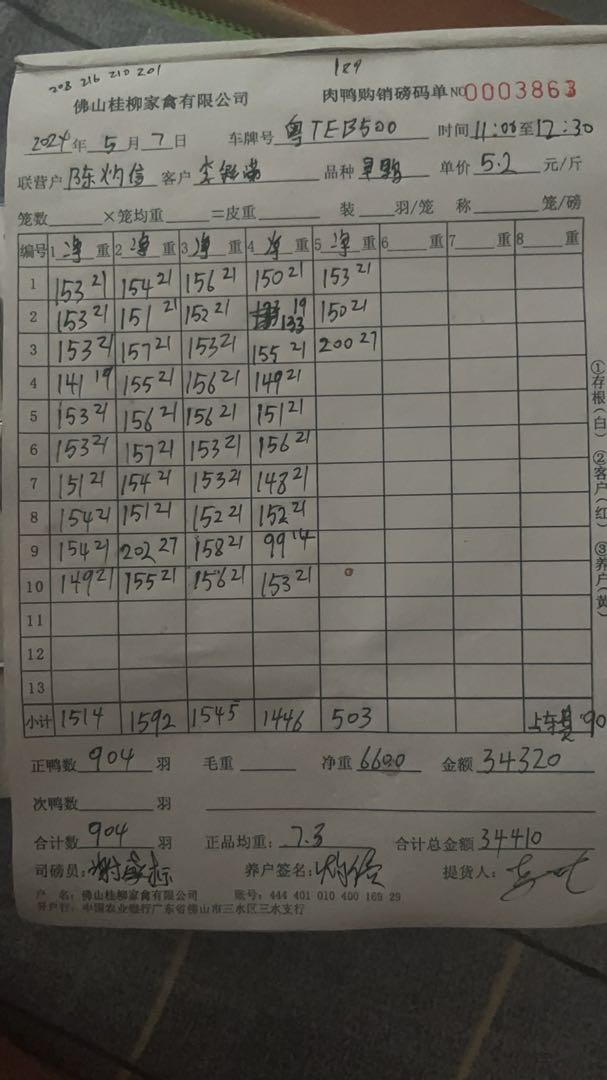 208 216 210 201 189
佛山桂柳家禽有限公司 肉鸭购销磅码单 NO 0003863
2024年5月7日 车牌号 粤TEB500 时间 11:08至12:30
联营户 陈灼信 客户 李 品种 单价 5.2 元/斤
笼数 ×笼均重 =皮重 装 羽/笼 称 笼/磅
编号 1 净 重 2 净 重 3 净 重 4 净 重 5 净 重 6 重 7 重 8 重
1 153 21 154 21 156 21 150 21 153 21
2 153 21 151 21 152 21 133 19 150 21
3 153 21 157 21 153 21 155 21 200 27
4 141 19 155 21 156 21 149 21
5 153 21 156 21 156 21 151 21
6 153 21 157 21 153 21 156 21
7 151 21 154 21 153 21 148 21
8 154 21 151 21 152 21 152 21
9 154 21 202 27 158 21 99 14
10 149 21 155 21 156 21 153 21
11
12
13
小计 1514 1592 1545 1446 503 上车费 90
①存根(白) ②客户(红) ③养户(黄)
正鸭数 904 羽 毛重 净重 6600 金额 34320
次鸭数 羽
合计数 904 羽 正品均重: 7.3 合计总金额 34410
司磅员: 养户签名: 灼信 提货人:
户 名: 佛山桂柳家禽有限公司 账号: 444 401 010 400 169 29
开户行: 中国农业银行广东省佛山市三水区三水支行